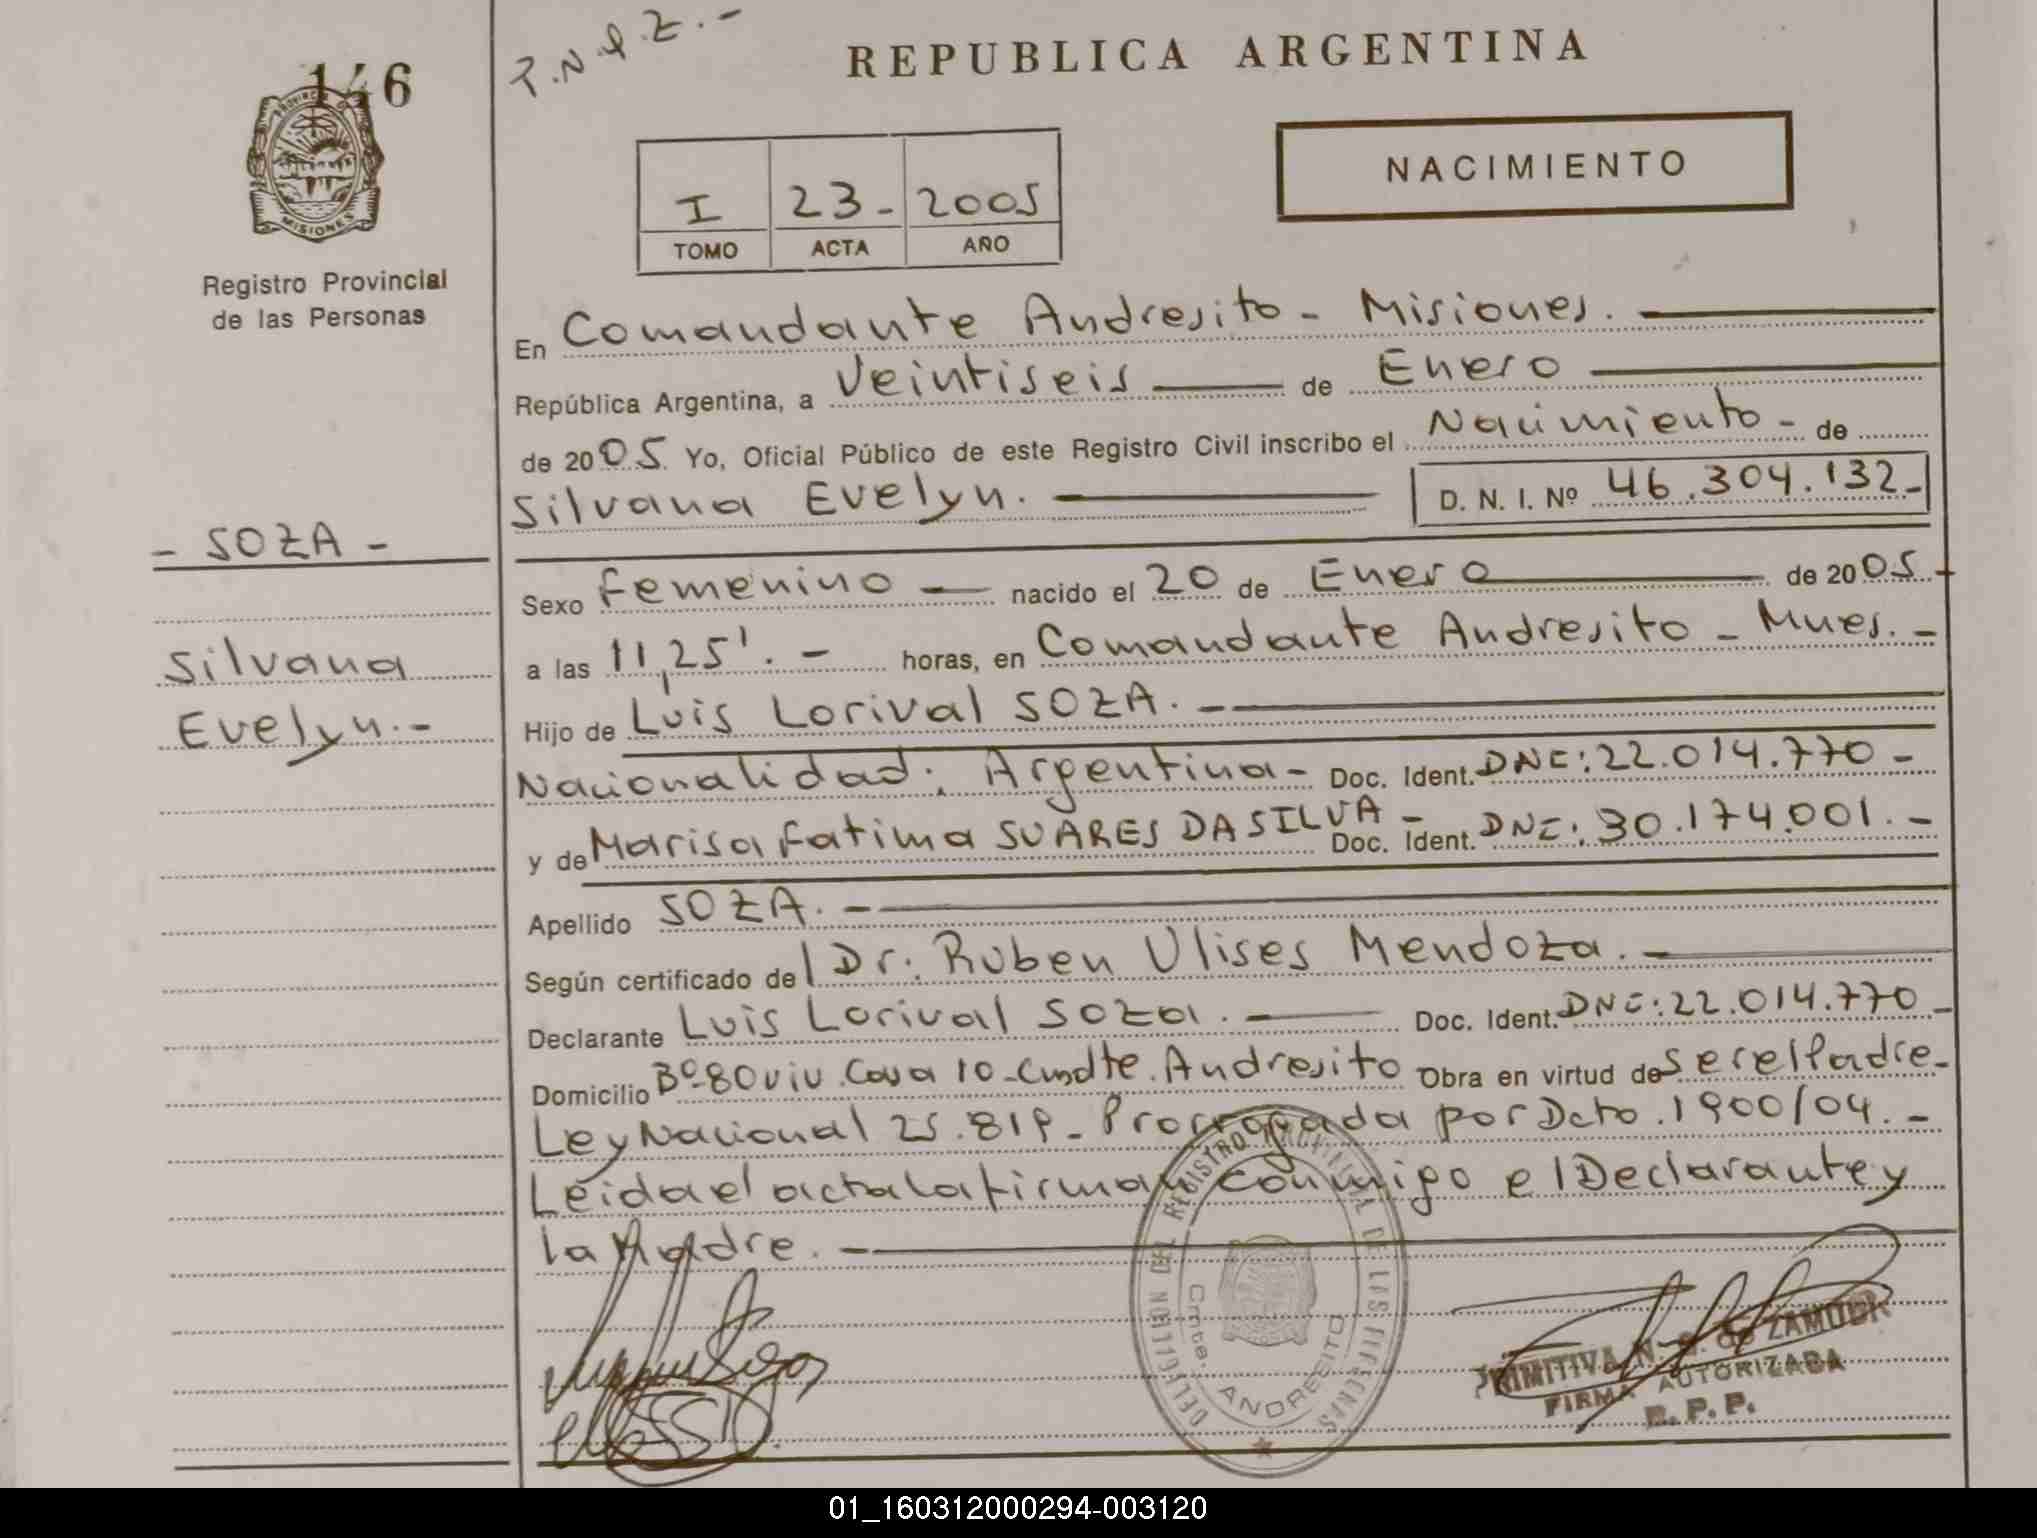 146
REPUBLICA ARGENTINA
PROVINCIA DE
MISIONES
Registro Provincial
de las Personas
I 23- 2005
TOMO ACTA AÑO
NACIMIENTO
En Comandante Andresito - Misiones.
República Argentina, a Veintiseis de Enero
de 2005. Yo, Oficial Público de este Registro Civil inscribo el Nacimiento - de
Silvana Evelyn. D. N. I. Nº 46.304.132-
- SOZA -
Silvana
Evelyn.-
Sexo Femenino nacido el 20 de Enero de 2005
a las 11,25'.- horas, en Comandante Andresito - Mnes.-
Hijo de Luis Lorival SOZA.-
Nacionalidad: Argentina- Doc. Ident. DNI: 22.014.770-
y de Marisa Fatima SUARES DA SILVA - Doc. Ident. DNI: 30.174.001.-
Apellido SOZA.-
Según certificado del Dr. Ruben Ulises Mendoza.-
Declarante Luis Lorival Soza.- Doc. Ident. DNI: 22.014.770-
Domicilio Bº 80 viv. Casa 10-Cmdte. Andresito Obra en virtud de ser el Padre-
Ley Nacional 25.819- Prorrogada por Dcto. 1900/04.-
Leida el acta la firman conmigo el Declarante y
la Madre.-
DELEGACION DEL REGISTRO PROVINCIAL DE LAS PERSONAS
Cmte. ANDRESITO
PRIMITIVA N. de ZAMUDIO
FIRMA AUTORIZADA
R. P. P.
01_160312000294-003120